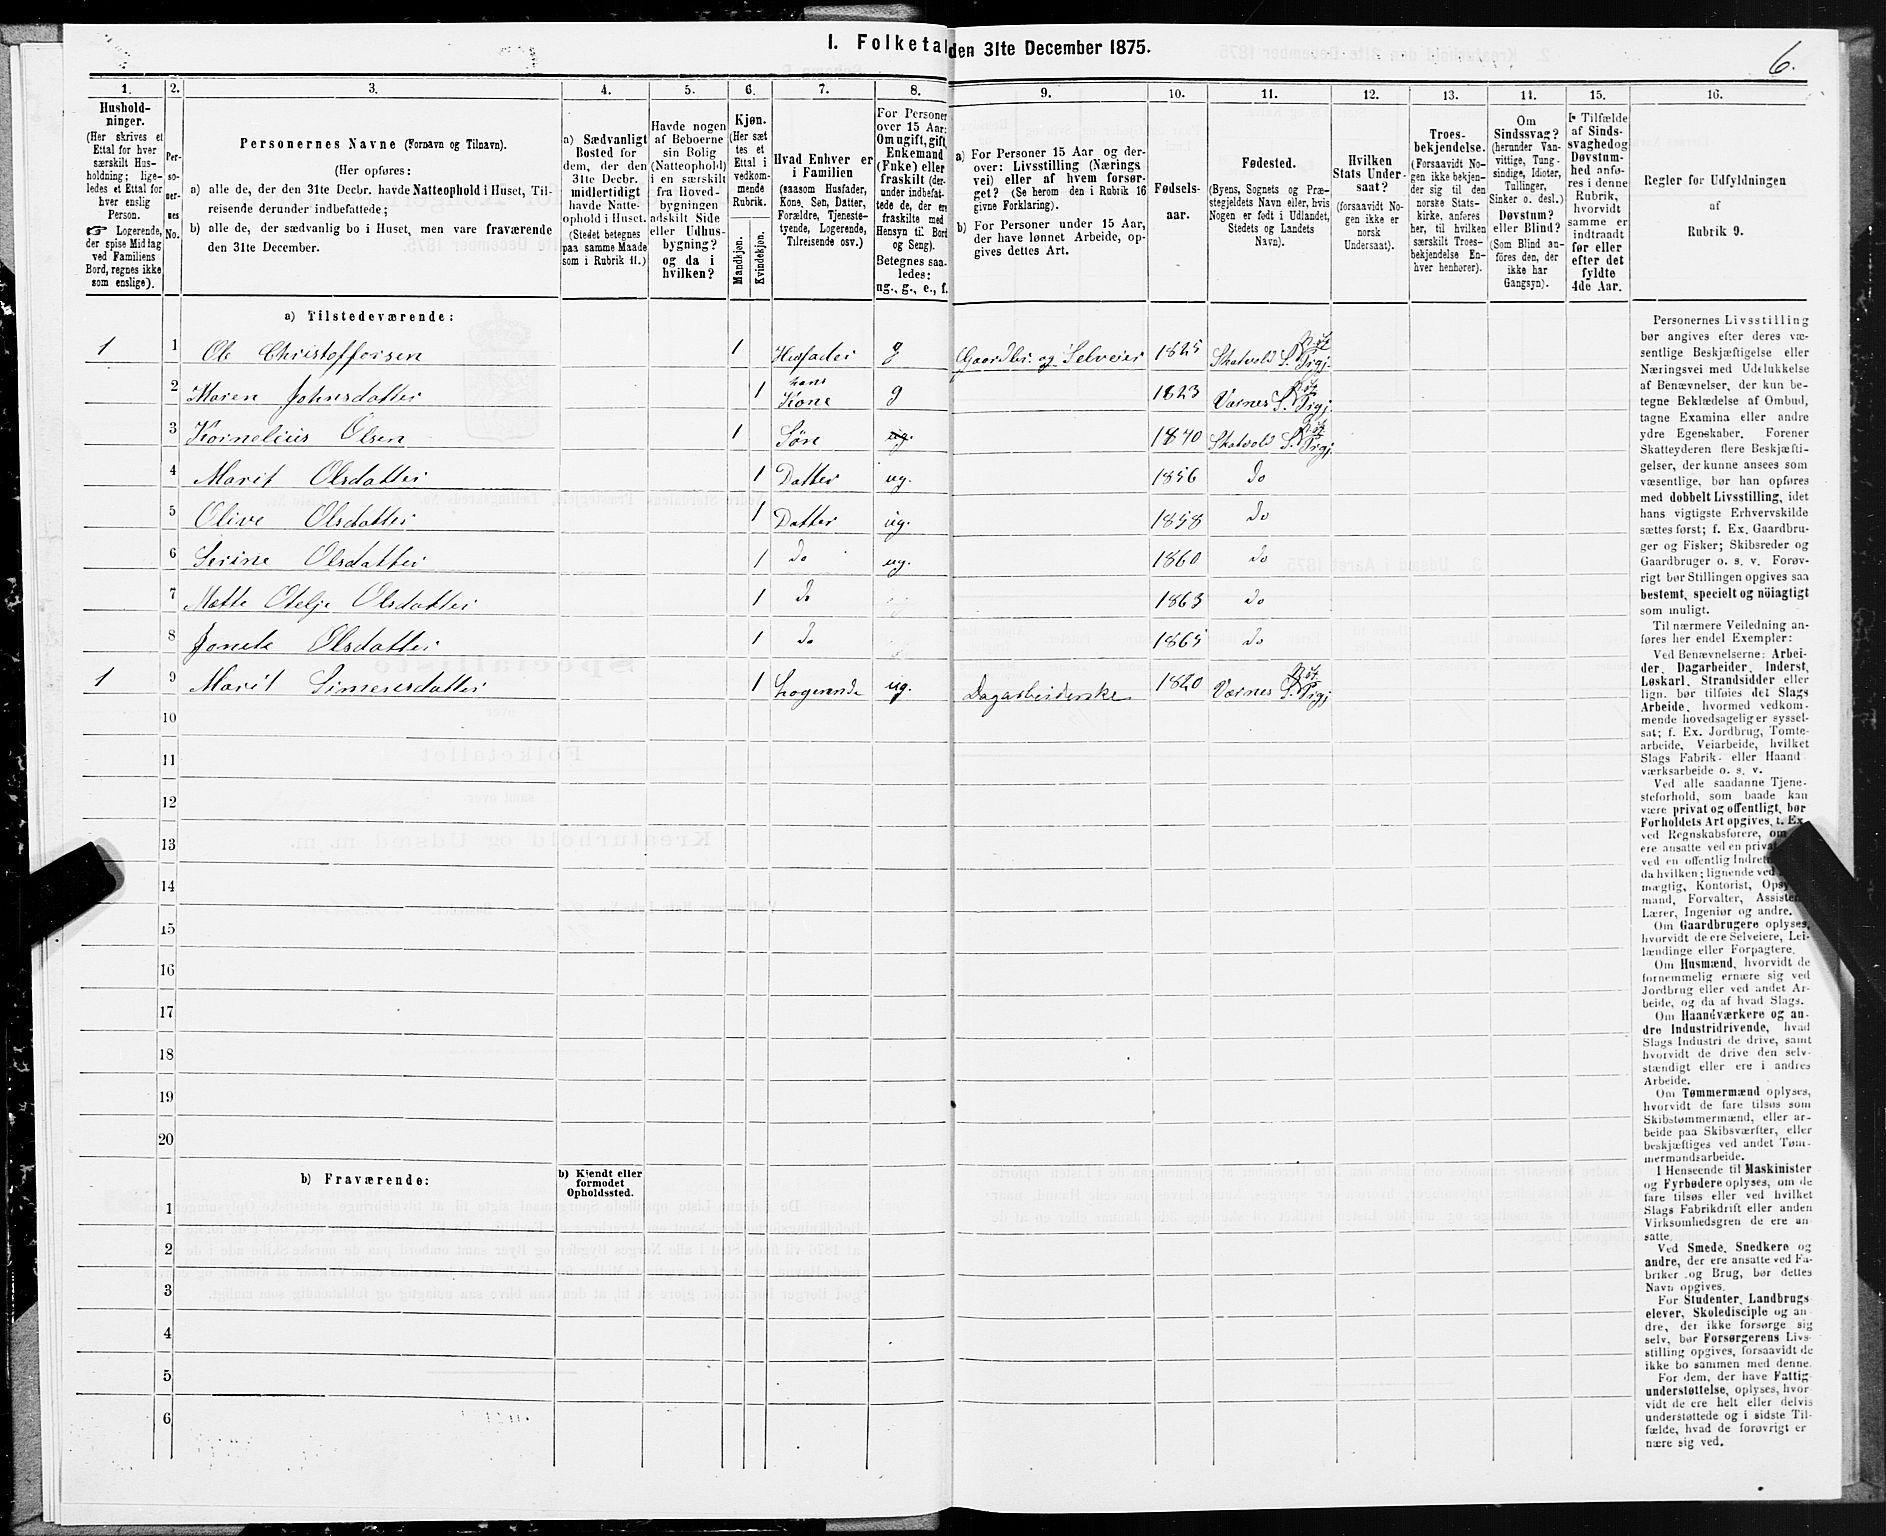 I. Folketal den 31te December 1875.
6.
1. 2. 3. 4. 5. 6. 7. 8. 9. 10. 11. 12. 13. 14. 15. 16.
Hushold-
ninger.
(Her skrives et
Ettal for hver
særskilt Hus-
holdning; lige-
ledes et Ettal for
hver enslig
Person.
☞ Logerende,
der spise Middag
ved Familiens
Bord, regnes ikke
som enslige).
Per-
so-
ner-
nes
No.
Personernes Navne (Fornavn og Tilnavn).
(Her opføres:
a) alle de, der den 31te Decbr. havde Natteophold i Huset, Til-
reisende derunder indbefattede;
b) alle de, der sædvanlig bo i Huset, men vare fraværende
den 31te December.
a) Sædvanligt
Bosted for
dem, der den
31te Decbr.
midlertidigt
havde Natte-
ophold i Huset.
(Stedet betegnes
paa samme Maade
som i Rubrik 11.)
Havde nogen
af Beboerne
sin Bolig
(Natteophold)
i en særskilt
fra Hoved-
bygningen
adskilt Side
eller Udhus-
bygning?
og da i
hvilken?
Kjøn.
(Her sæt-
tes et
Ettal i
vedkom-
mende
Rubrik.
Mandkjøn.
Kvindekjøn.
Hvad Enhver er
i Familien
(saasom Husfader,
Kone, Søn, Datter,
Forældre, Tjeneste-
tyende, Logerende,
Tilreisende osv.)
For Personer
over 15 Aar:
Om ugift, gift,
Enkemand
(Enke) eller
fraskilt (der-
under indbefat-
tede de, der ere
fraskilte med
Hensyn til Bord
og Seng).
Betegnes saa-
ledes:
ug., g., e., f.
a) For Personer 15 Aar og der-
over: Livsstilling (Nærings-
vei) eller af hvem forsør-
get? (Se herom den i Rubrik 16
givne Forklaring).
b) For Personer under 15 Aar,
der have lønnet Arbeide, op-
gives dettes Art.
Fødsels-
aar.
Fødested.
(Byens, Sognets og Præ-
stegjeldets Navn eller, hvis
Nogen er født i Udlandet,
Stedets og Landets
Navn).
Hvilken
Stats Under-
saat?
(forsaavidt No-
gen ikke er
norsk
Undersaat).
Troes-
bekjendelse.
(Forsaavidt No-
gen ikke bekjen-
der sig til den
norske Stats-
kirke, anføres
her, til hvilken
særskilt Troes-
bekjendelse En-
hver henhører).
Om
Sindssvag?
(herunder Van-
vittige, Tung-
sindige, Idioter,
Tullinger,
Sinker o. desl.)
Døvstum?
eller Blind?
(Som Blind an-
föres den, der
ikke har
Gangsyn).
I Tilfælde
af Sinds-
svaghed og
Døvstum-
hed anfø-
res i denne
Rubrik,
hvorvidt
samme er
indtraadt
før eller
efter det
fyldte
4de Aar.
Regler for Udfyldningen
af
Rubrik 9.
a) Tilstedeværende:
1 1 Ole Christoffersen 1 Husfader g Gaardbr. og Selveier 1825 Skatvold S. Prgj.
2 Maren Johnsdatter 1 hans Kone g 1823 Værnes S. Prgj
3 Kornelius Olsen 1 Søn ug. 1840 Skatvold S. Prgj.
4 Marit Olsdatter 1 Datter ug. 1856 do
5 Olive Olsdatter 1 Datter ug. 1858 do
6 Serine Olsdatter 1 do ug. 1860 do
7 Mette Otelje Olsdatter 1 do 1863 do
8 Jonete Olsdatter 1 do 1865 do
1 9 Marit Simensdatter 1 Logerende ug. Dagarbeiderske 1820 Værnes S. Prgj
10
11
12
13
14
15
16
17
18
19
20
b) Fraværende:
b) Kjendt eller
formodet
Opholdssted.
1
2
3
4
5
6
Personernes Livsstilling
bør angives efter deres væ-
sentlige Beskjæftigelse eller
Næringsvei med Udelukkelse
af Benævnelser, der kun be-
tegne Beklædelse af Ombud,
tagne Examina eller andre
ydre Egenskaber. Forener
Skatteyderen flere Beskjæfti-
gelser, der kunne ansees som
væsentlige, bør han opføres
med dobbelt Livsstilling, idet
hans vigtigste Erhvervskilde
sættes først; f. Ex. Gaardbru-
ger og Fisker; Skibsreder og
Gaardbruger o. s. v. Forøv-
rigt bør Stillingen opgives saa
bestemt, specielt og nöiagtigt
som muligt.
Til nærmere Veiledning an-
føres her endel Exempler:
Ved Benævnelserne: Arbei-
der, Dagarbeider, Inderst,
Løskarl, Strandsidder eller
lign. bør tilføies det Slags
Arbeide, hvormed vedkom-
mende hovedsagelig er syssel-
sat; f. Ex. Jordbrug, Tomte-
arbeide, Veiarbeide, hvilket
Slags Fabrik- eller Haand-
værksarbeide o. s. v.
Ved alle saadanne Tjene-
steforhold, som baade kan
være privat og offentligt, bør
Forholdets Art opgives, t. Ex.
ved Regnskabsførere, om
ere ansatte ved en privat
ved en offentlig Indret
da hvilken; lignende ved
mægtig, Kontorist, Opsy
mand, Forvalter, Assisten
Lærer, Ingeniør og andre.
Om Gaardbrugere oplyses,
hvorvidt de ere Selveiere, Lei-
lændinge eller Forpagtere.
Om Husmænd, hvorvidt de
fornemmelig ernære sig ved
Jordbrug eller ved andet Ar-
beide, og da af hvad Slags.
Om Haandværkere og an-
dre Industridrivende, hvad
Slags Industri de drive, samt
hvorvidt de drive den selv-
stændigt eller ere i andres
Arbeide.
Om Tømmermænd oplyses,
hvorvidt de fare tilsøs som
Skibstømmermænd, eller ar-
beide paa Skibsværfter, eller
beskjæftiges ved andet Tøm-
mermandsarbeide.
I Henseende til Maskinister
og Fyrbødere oplyses, om de
fare tilsøs eller ved hvilket
Slags Fabrikdrift eller anden
Virksomhedsgren de ere an-
satte.
Ved Smede, Snedkere og
andre, der ere ansatte ved Fa-
briker og Brug, bør dettes
Navn opgives.
For Studenter, Landbrugs-
elever, Skoledisciple og an-
dre, der ikke forsørge sig
selv, bør Forsørgerens Livs-
stilling opgives, forsaavidt de
ikke bo sammen med denne.
For dem, der have Fattig-
understøttelse, oplyses, hvor-
vidt de ere helt eller delvis
understøttede og i sidste Til-
fælde, hvad de forøvrigt er-
nære sig ved.